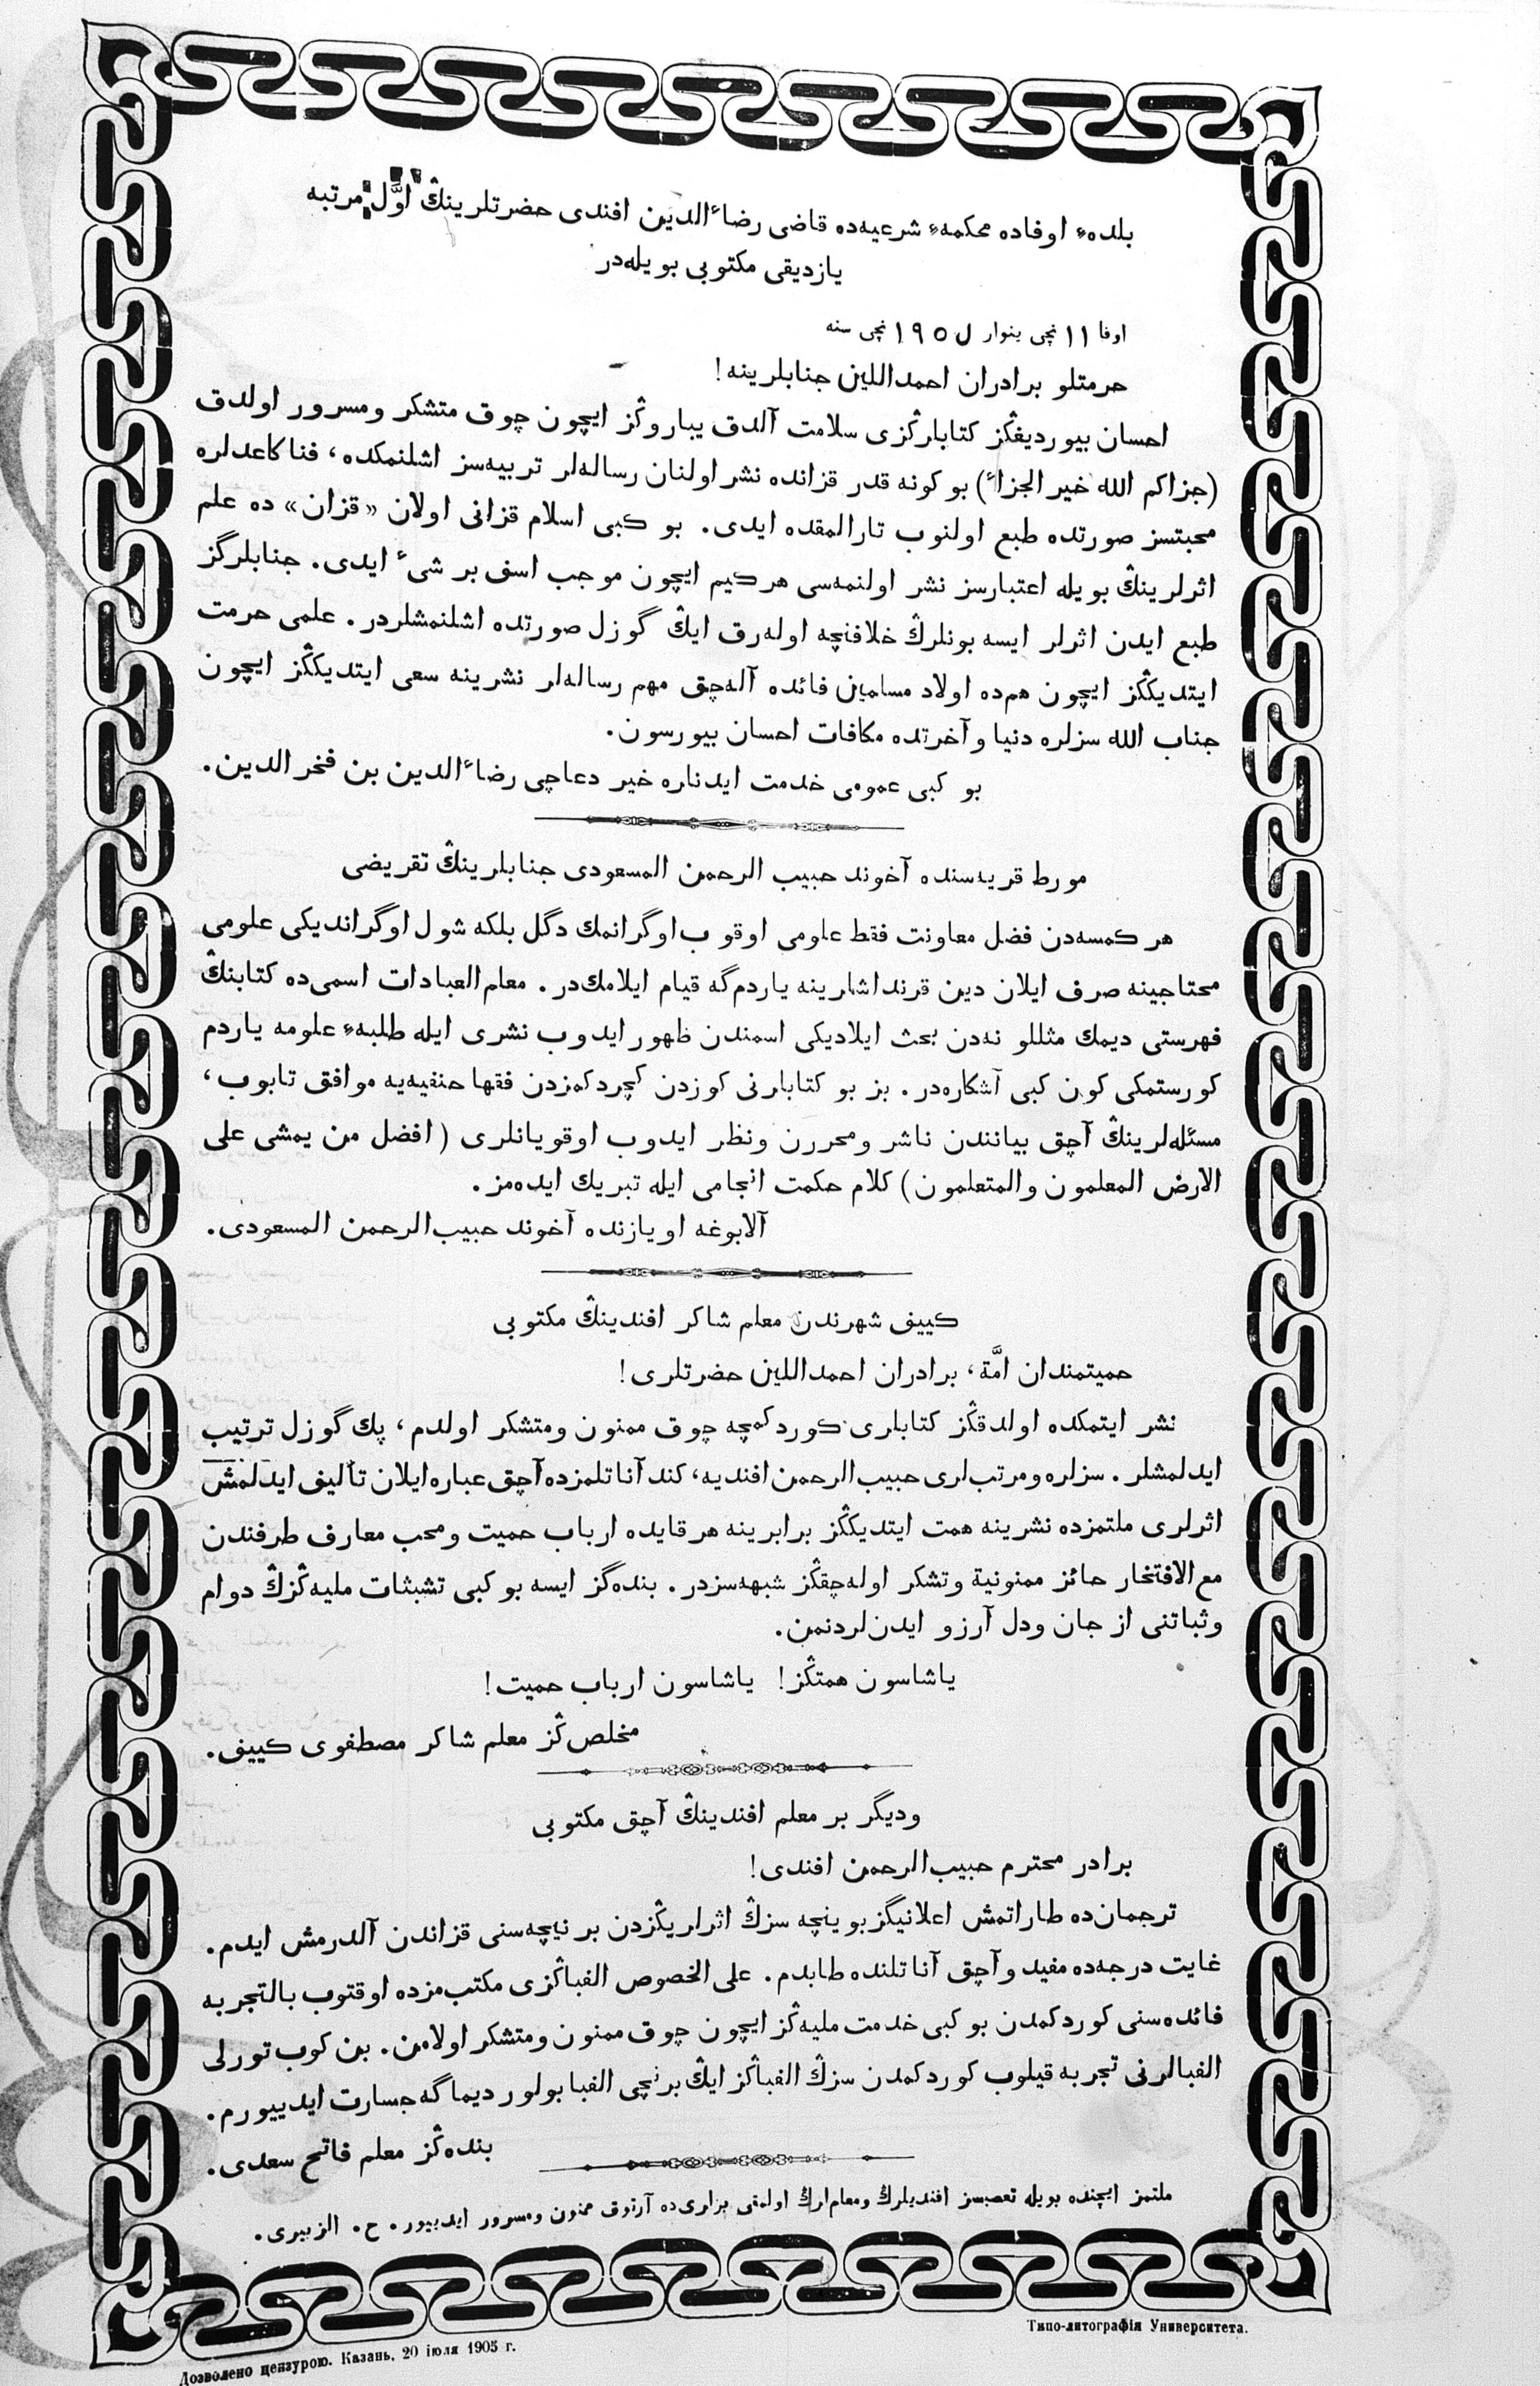 بلده‌ء اوفاده محكمه‌ء شرعيه‌ده قاضی رضاءالدين افندی حضرتلرينڭ اوَّل مرتبه
يازديقی مكتوبی بويله‌در
اوفا ١١ نچی ينوار ١٩٠٥ نچی سنه
حرمتلو برادران احمداللين جنابلرينه!
احسان بيورديغڭز كتابلرڭزی سلامت آلدق يباروڭز ايچون چوق متشكر ومسرور اولدق
(جزاكم الله خير الجزاء) بو كونه قدر قزانده نشر اولنان رساله‌لر تربيه‌سز اشلنمكده، فنا كاعدلره
محبتسز صورتده طبع اولنوب تارالمقده ايدی. بو كبی اسلام قزانی اولان «قزان» ده علم
اثرلرينڭ بويله اعتبارسز نشر اولنمه‌سی هركيم ايچون موجب اسف بر شیء ايدی. جنابلرگز
طبع ايدن اثرلر ايسه بونلرڭ خلافنچه اوله‌رق ايڭ گوزل صورتده اشلنمشلردر. علمی حرمت
ايتديڭكز ايچون هم‌ده اولاد مسلمين فائده آله‌چق مهم رساله‌لر نشرينه سعی ايتديكڭز ايچون
جناب الله سزلره دنيا وآخرتده مكافات احسان بيورسون.
بو كبی عمومی خدمت ايدناره خير دعاچی رضاءالدين بن فخرالدين.
مورط قريه‌سنده آخوند حبيب الرحمن المسعودی جنابلرينڭ تقريضی
هر كمسه‌دن فضل معاونت فقط علومی اوقوب اوگرانمك دگل بلكه شول اوگرانديكی علومی
محتاجينه صرف ايلان دين قرنداشلرينه ياردم‌گه قيام ايلامك‌در. معلم‌العبادات اسمی‌ده كتابنڭ
فهرستی ديمك مثللو نه‌دن بحث ايلاديكی اسمندن ظهور ايدوب نشری ايله طلبه‌ء علومه ياردم
كورستمكی كون كبی آشكاره‌در. بز بو كتابلرنی كوزدن كچردكمزدن فقها حنفيه‌يه موافق تابوب،
مسئله‌لرينڭ آچق بيانندن ناشر ومحررن ونظر ايدوب اوقويانلری (افضل من يمشی علی
الارض المعلمون والمتعلمون) كلام حكمت انجامی ايله تبريك ايده‌مز.
آلابوغه اويازنده آخوند حبيب‌الرحمن المسعودی.
كييف شهرندن معلم شاكر افندينڭ مكتوبی
حميتمندان امَّة، برادران احمداللين حضرتلری!
نشر ايتمكده اولدقڭز كتابلری كوردكمچه چوق ممنون ومتشكر اولدم، پك گوزل ترتيب
ايدلمشلر. سزلره ومرتب‌لری حبيب‌الرحمن افنديه، كند آنا تلمزده آچق عباره ايلان تأليف ايدلمش
اثرلری ملتمزده نشرينه همت ايتديكڭز برابرينه هرقايده ارباب حميت ومحب معارف طرفندن
مع‌الافتخار حائز ممنونية وتشكر اوله‌چقڭز شبهه‌سزدر. بنده‌گز ايسه بو كبی تشبثات مليه‌ڭزڭ دوام
وثباتنی از جان ودل آرزو ايدن‌لردنمن.
ياشاسون همتڭز! ياشاسون ارباب حميت!
مخلص‌ڭز معلم شاكر مصطفوی كييف.
وديگر بر معلم افندينڭ آچق مكتوبی
برادر محترم حبيب‌الرحمن افندی!
ترجمان‌ده طاراتمش اعلانيگز بوينچه سزڭ اثرلريڭزدن بر نيچه‌سنی قزاندن آلدرمش ايدم.
غايت درجه‌ده مفيد وآچق آنا تلنده طابدم. علی الخصوص الفباڭزی مكتب‌مزده اوقتوب بالتجربه
فائده‌سنی كوردكمدن بو كبی خدمت مليه‌ڭز ايچون چوق ممنون ومتشكر اولامن. بن كوب تورلی
الفبالرنی تجربه قيلوب كوردكمدن سزڭ الفباڭز ايڭ برنچی الفبا بولور ديماگه جسارت ايدييورم.
بنده‌ڭز معلم فاتح سعدی.
ملتمز ايچنده بويله تعصبسز افنديلرڭ ومعلم‌لرڭ اولمقی بزلری‌ده آرتوق ممنون ومسرور ايدييور. ح. الزبيری.
Дозволено цензурою. Казань, 20 іюля 1905 г.
Типо-литографія Университета.